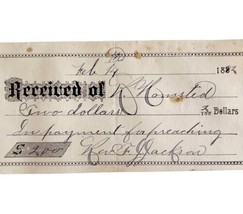 Feb 4 188
Received of Homsted
Two dollars Dollars
In payment for preaching
$2.00 Rev. F. Jackson